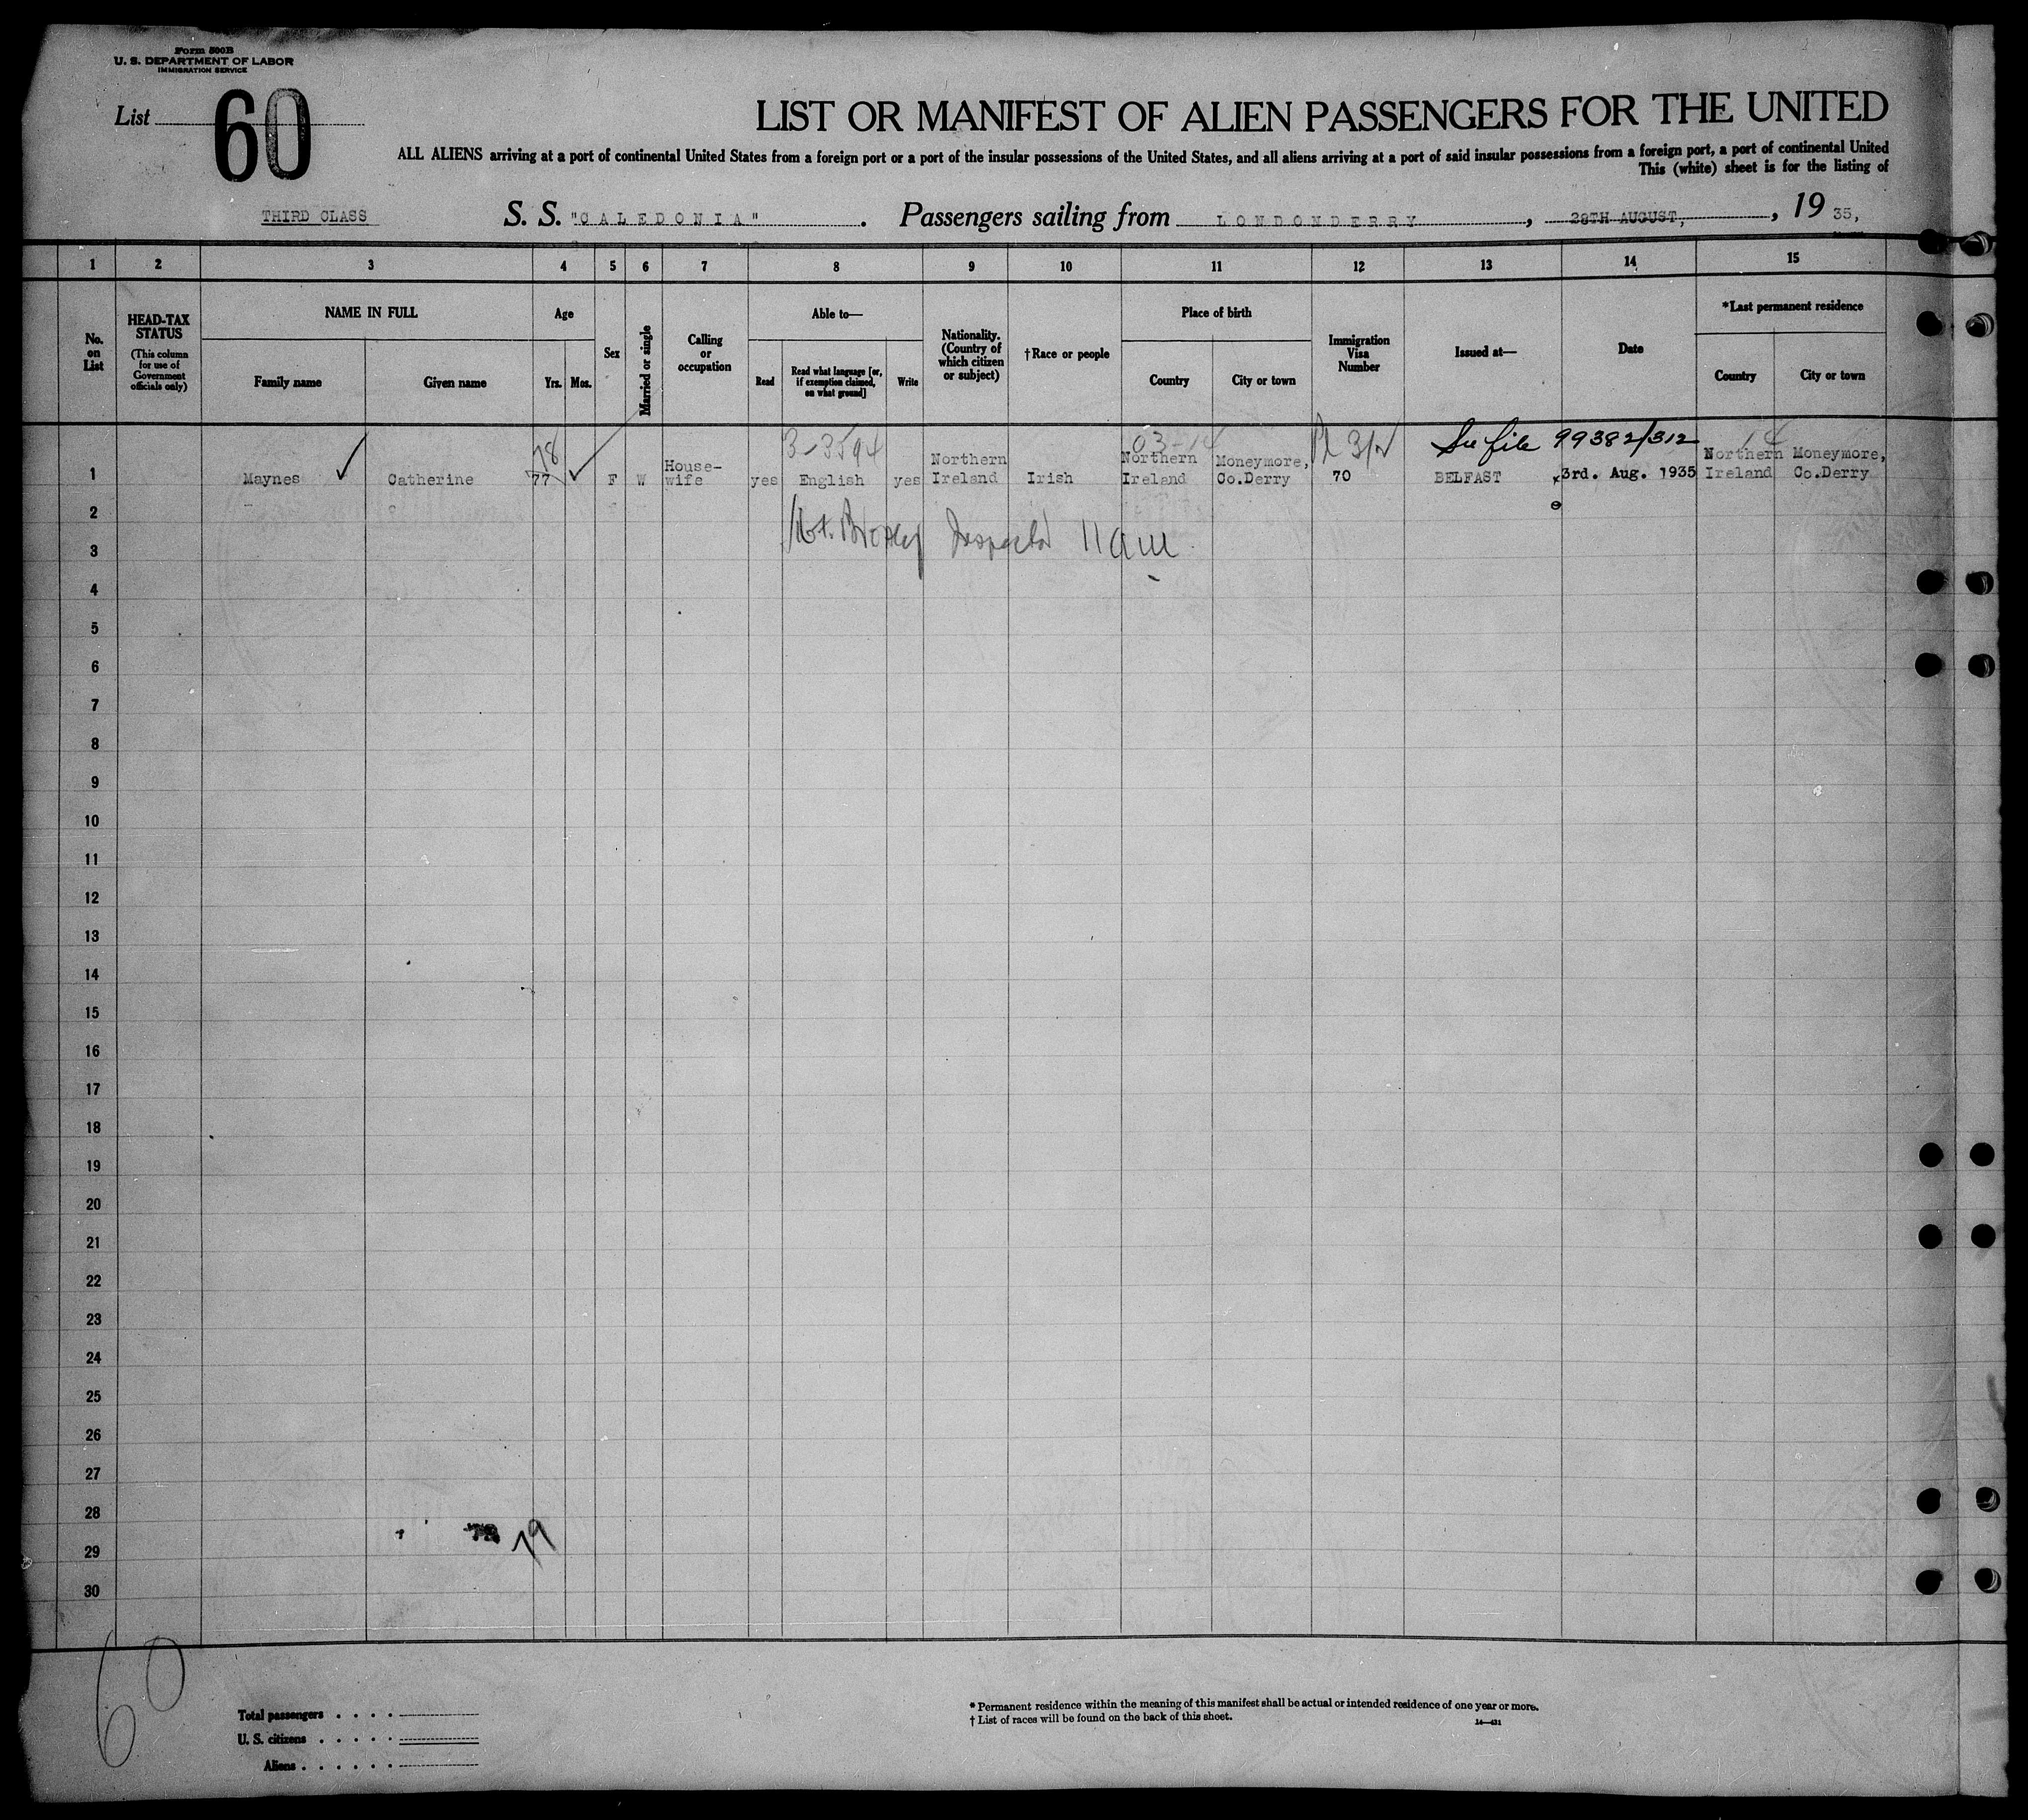 Form 500B
U. S. DEPARTMENT OF LABOR
IMMIGRATION SERVICE
List 60
LIST OR MANIFEST OF ALIEN PASSENGERS FOR THE UNITED
ALL ALIENS arriving at a port of continental United States from a foreign port or a port of the insular possessions of the United States, and all aliens arriving at a port of said insular possessions from a foreign port, a port of continental United
This (white) sheet is for the listing of
THIRD CLASS S. S. "CALEDONIA". Passengers sailing from LONDONDERRY, 28TH AUGUST, , 19 35,
1 2 3 4 5 6 7 8 9 10 11 12 13 14 15
No. on List
HEAD-TAX STATUS
(This column for use of Government officials only)
NAME IN FULL
Family name Given name
Age
Yrs. Mos.
Sex
Married or single
Calling or occupation
Able to—
Read
Read what language [or, if exemption claimed, on what ground]
Write
Nationality. (Country of which citizen or subject)
†Race or people
Place of birth
Country City or town
Immigration Visa Number
Issued at—
Date
*Last permanent residence
Country City or town
78 3-3594 03-14 See file 99382/312 14
1 Maynes Catherine 77 F W House-wife yes English yes Northern Ireland Irish Northern Ireland Moneymore, Co.Derry 70 BELFAST 3rd. Aug. 1935 Northern Ireland Moneymore, Co.Derry
2
3 Inspector 11 am
4
5
6
7
8
9
10
11
12
13
14
15
16
17
18
19
20
21
22
23
24
25
26
27
28
79
29
30
60
Total passengers
U. S. citizens
Aliens
* Permanent residence within the meaning of this manifest shall be actual or intended residence of one year or more.
† List of races will be found on the back of this sheet.
14—431